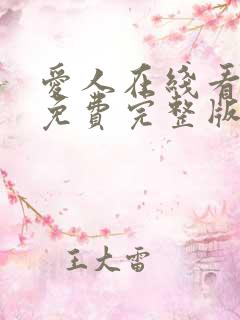 爱人在线看
免费完整版
王大雷